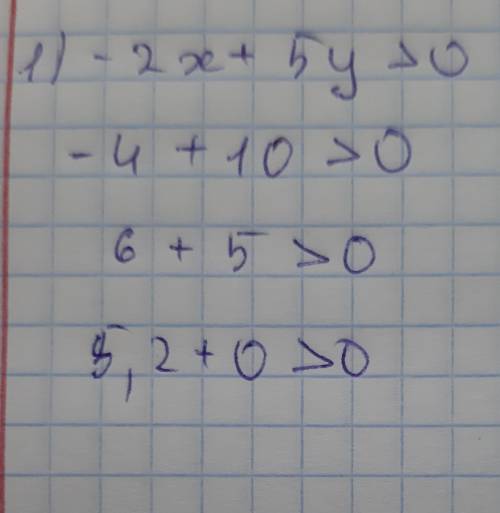 1) - 2x + 5y > 0
- 4 + 10 > 0
6 + 5 > 0
5,2 + 0 > 0